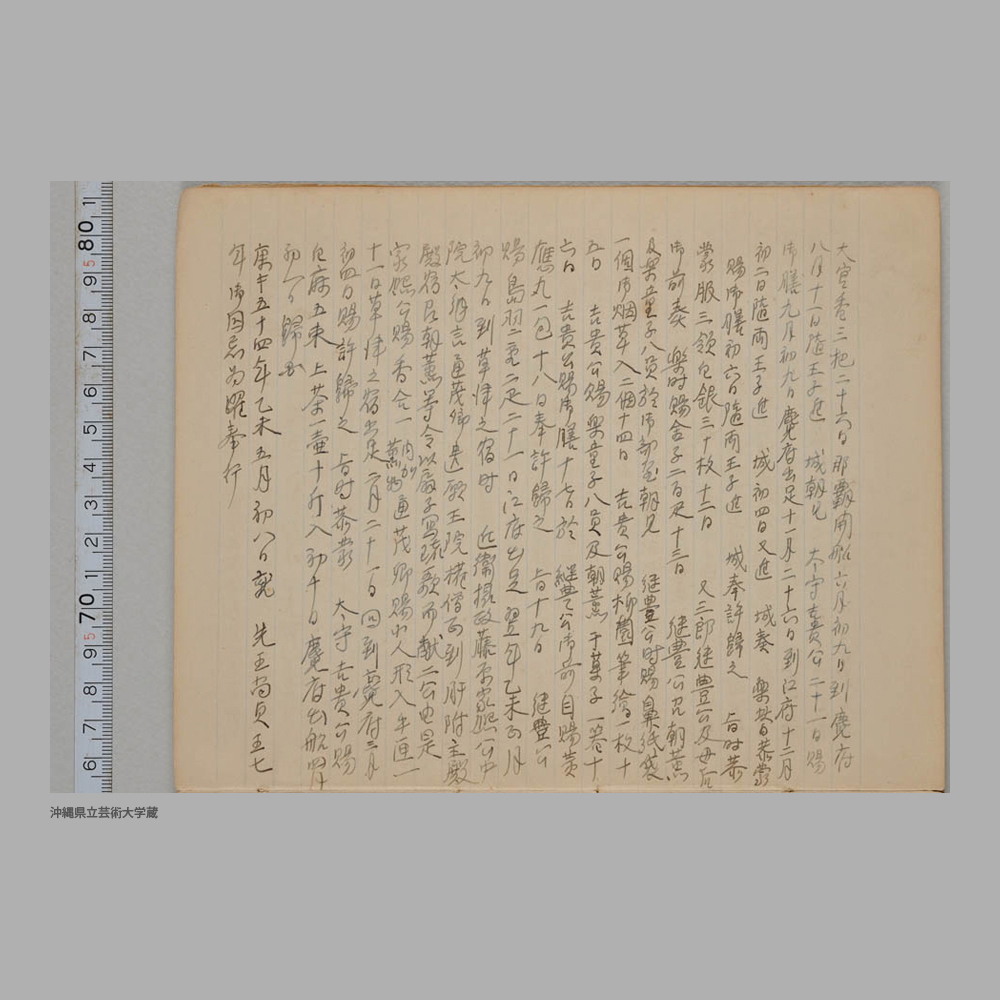 大官香三把二十六日那覇開船六月初九日到麑府
八月十一日随王子進 城朝見 太守貴公二十一日賜
御膳九月初九日麑府出足十一月二十六日到江府十二月
初二日随両王子進 城初四日又進 城奏 楽共日恭蒙
賜御膳初六日随両王子進 城奉許歸之 旨时恭
蒙服三領白銀三十枚十二日 又三郎継豊公及母后
御前奏 楽时賜金子二百疋十三日 継豊公召朝薫
及楽童子八員於御部屋朝見 継豊公时賜鼻紙袋
一個御烟草入二個十四日 吉貴公賜柳園筆繪一枚十
五日 吉貴公賜楽童子八員及朝薫干菓子一箱十
六日 吉貴公賜御膳十七日於 継豊公御前自賜黄
應丸一包十八日奉許歸之 旨十九日 継豊公
賜島羽二重二疋二十一日江府出足翌年乙未正月
初九日到草津之宿时 近衛摂政藤原家熙公中
院太納言通茂卿遣願王院権僧正到肝附主殿
殿宿召朝薫等令以扇子写琉歌而献二公也是
家熙公賜香合一 薫物内有 通茂卿賜御人形入手匣一
十一日草津之宿出足二月二十一日回到麑府三月
初四日賜許歸之 旨时恭蒙 太守吉貴公賜
白麻五束上茶一壷十斤入初十日麑府出船四月
初一日歸国
康熙五十四年乙未五月初八日爲 先王尚貞王七
年御囘忌爲躍奉行